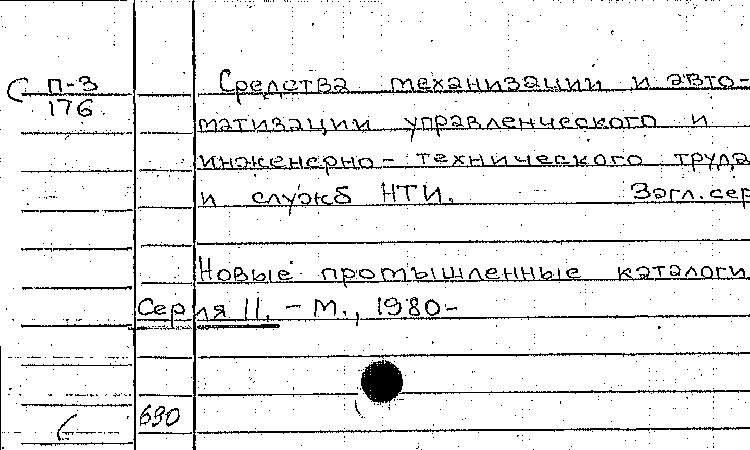 С П-3
176
Средства механизации и авто-
матизации управленческого и
инженерно-технического труда
и служб НТИ. Загл. сер
Новые промышленные каталоги
Серия 11. - М., 1980-
690